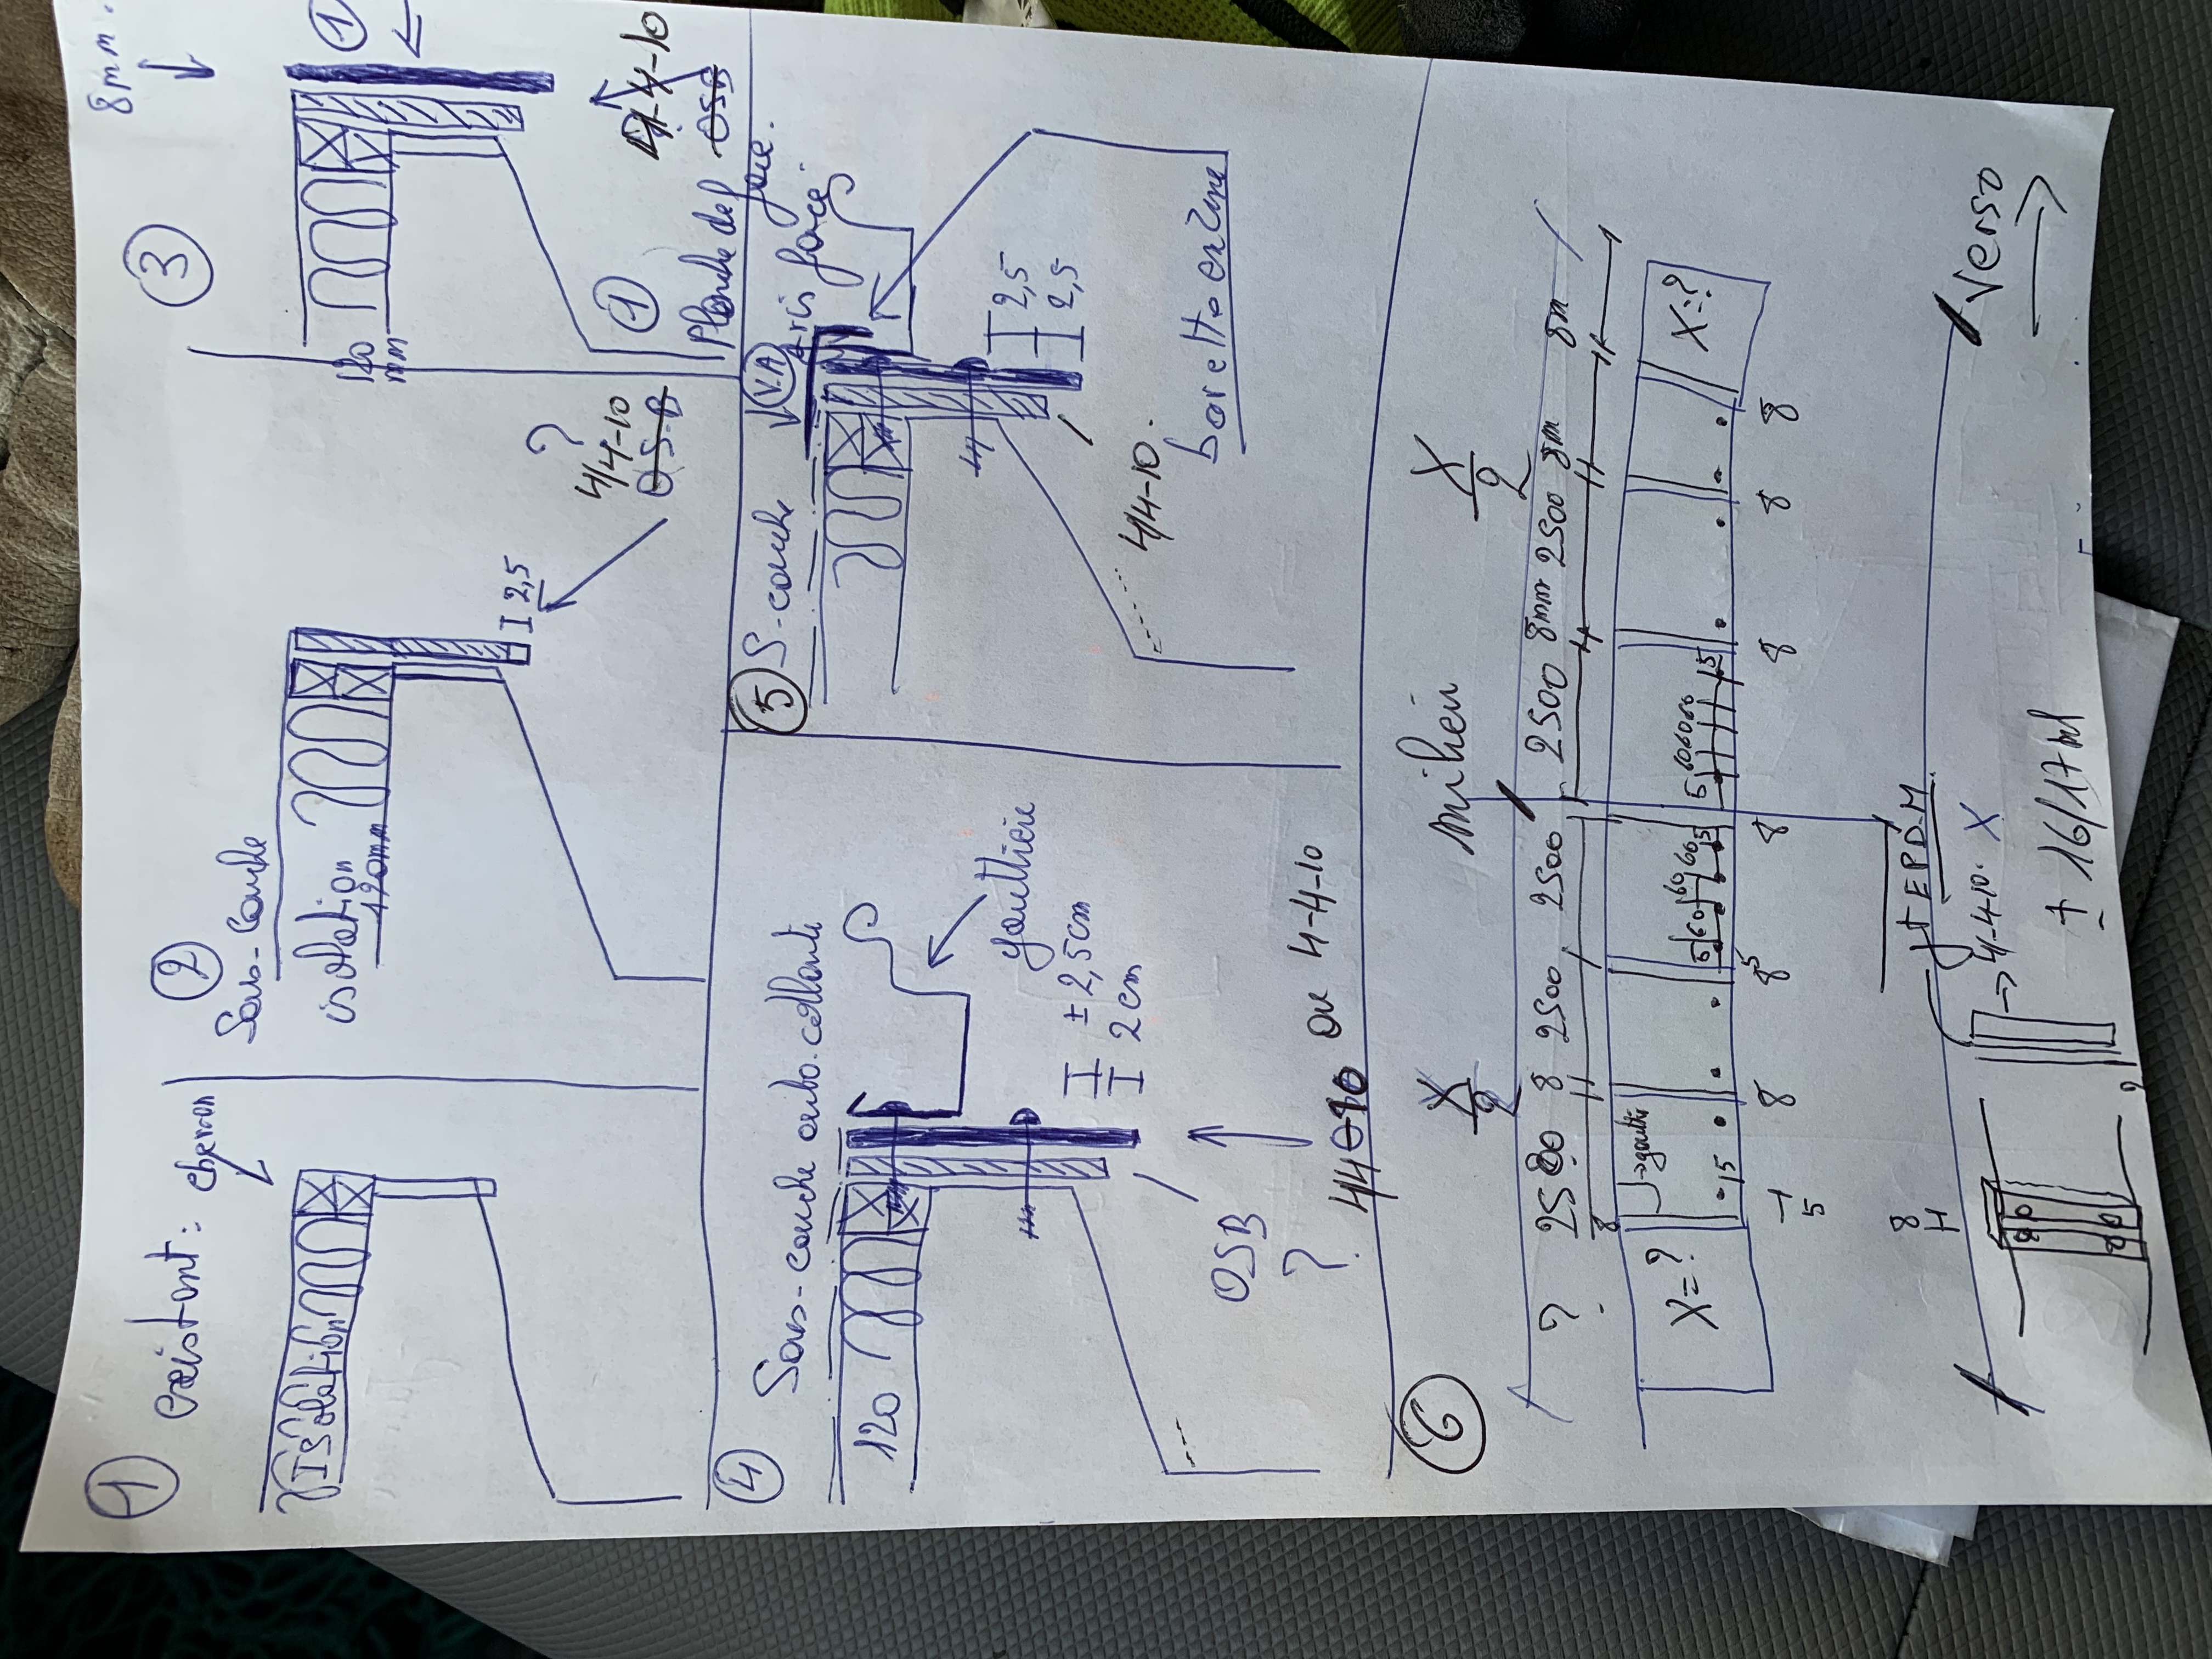 1
existant:
cheron
ISolation
2
Sous-couche
isolation
120mm
I 2,5
?
4/4-10
O.S-B
3
8mm.
1
120
mm
4-4-10
OSB
1
Planche de face.
4
Sous-couche auto-collante
120
gouttière
± 2,5cm
2cm
OSB
?
44-10 ou 4-4-10
5
S-couche
V.A
vis forcé
2,5
2,5
4/4-10.
bavette en zinc
6
X
2
milieu
X
2
?
2500
8
2500
2500
2500
8mm
2500
8m
8m
8
X=?
gouttière
15
5
60
60
60
15
5
60
60
60
15
X=?
5
8
8
5
8
8
8
8
8
H
EPD-M
4-4-10. X
± 16/17ml
Verso